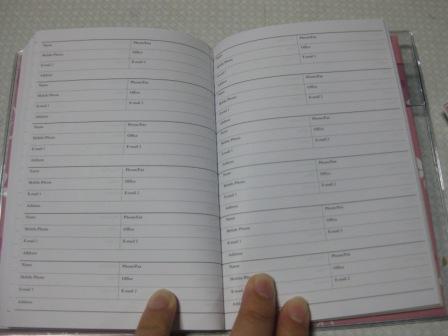 Name Phone/Fax
Mobile Phone Office
E-mail 1 E-mail 2
Address
Name Phone/Fax
Mobile Phone Office
E-mail 1 E-mail 2
Address
Name Phone/Fax
Mobile Phone Office
E-mail 1 E-mail 2
Address
Name Phone/Fax
Mobile Phone Office
E-mail 1 E-mail 2
Address
Name Phone/Fax
Mobile Phone Office
E-mail 1 E-mail 2
Address
Name Phone/Fax
Mobile Phone Office
E-mail 1 E-mail 2
Address
Name Phone/Fax
Mobile Phone Office
E-mail 1 E-mail 2
Address
Name Phone/Fax
Mobile Phone Office
E-mail 1 E-mail 2
Address
Name Phone/Fax
Mobile Phone Office
E-mail 1 E-mail 2
Address
Name Phone/Fax
Mobile Phone Office
E-mail 1 E-mail 2
Address
Name Phone/Fax
Mobile Phone Office
E-mail 1 E-mail 2
Address
Name Phone/Fax
Mobile Phone Office
E-mail 1 E-mail 2
Address